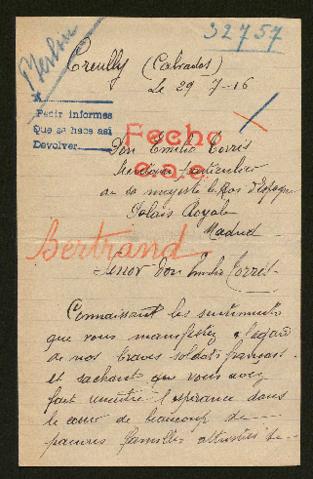 32757
Creully (Calvados)
Le 29 7-16
Pedir informes
Que se hace así
Devolver
Fecho
e.a.e.
Don Emilio Torrès
Secrétaire particulier
de sa majesté le Roi d'Espagne
Palais Royal
Madrid
Bertrand
Señor don Emilio Torrès
Connaissant les sentiments
que vous manifestez a l'égard
de nos braves soldats français
et sachant que vous avez
fait renaitre l'espérance dans
le cœur de beaucoup de
pauvres familles attristées